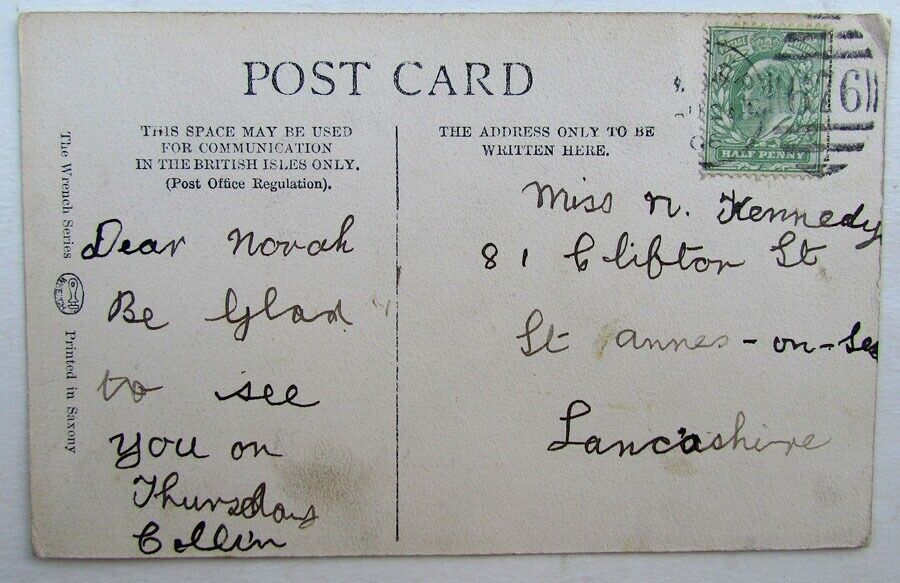 POST CARD
THIS SPACE MAY BE USED
FOR COMMUNICATION
IN THE BRITISH ISLES ONLY.
(Post Office Regulation).
THE ADDRESS ONLY TO BE
WRITTEN HERE.
The Wrench Series
Printed in Saxony
HALF PENNY
676
Dear Norah
Be Glad
to see
you on
Thursday
Collin
Miss N. Kennedy
81 Clifton St
St Annes-on-Sea
Lancashire